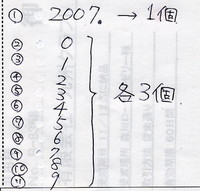 ① 2007. → 1個
② 0
③ 1
④ 2
⑤ 3
⑥ 4
⑦ 5
⑧ 6
⑨ 7
⑩ 8
⑪ 9
各3個